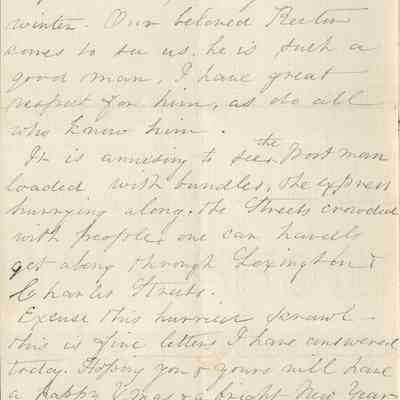 winter. Our beloved Rector
comes to see us. he is such a
good man, I have great
respect for him, as do all
who know him.
It is amusing to see the Postman
loaded with bundles, the express
hurrying along. the Streets crowded
with people, one can hardly
get along through Lexington &
Charles Streets.
Excuse this hurried scrawl -
this is five letters I have answered
today. Hoping you & yours will have
a happy Xmas & a bright New Year